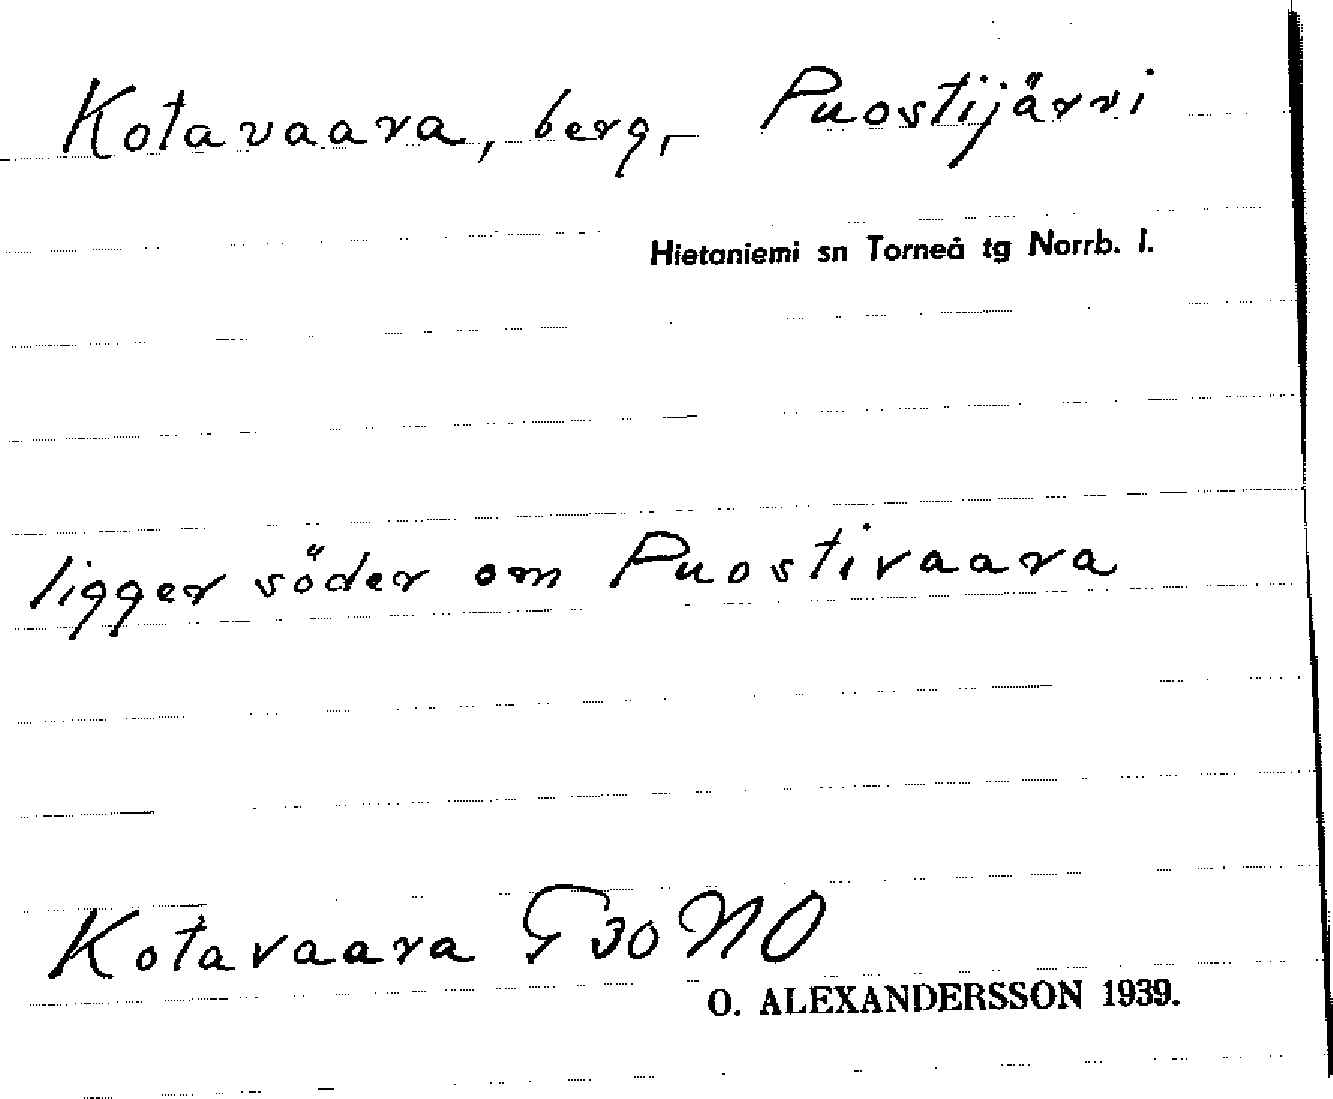 Kotavaara, berg, Puostijärvi
Hietaniemi sn Torneå tg Norrb. l.
ligger söder om Puostivaara
Kotavaara G 30 NO
O. ALEXANDERSSON 1939.